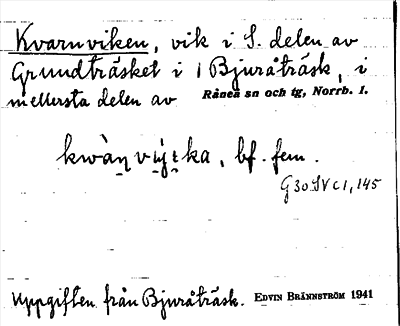 Kvarnviken, vik i S. delen av
Grundträsket i / Bjuråträsk, i
mellersta delen av Råneå sn och tg, Norrb. l.
kwàṇ vi̯jt̯ka, bf. fem.
G 30 SV c 1, 145
Uppgiften från Bjuråträsk. EDVIN BRÄNNSTRÖM 1941